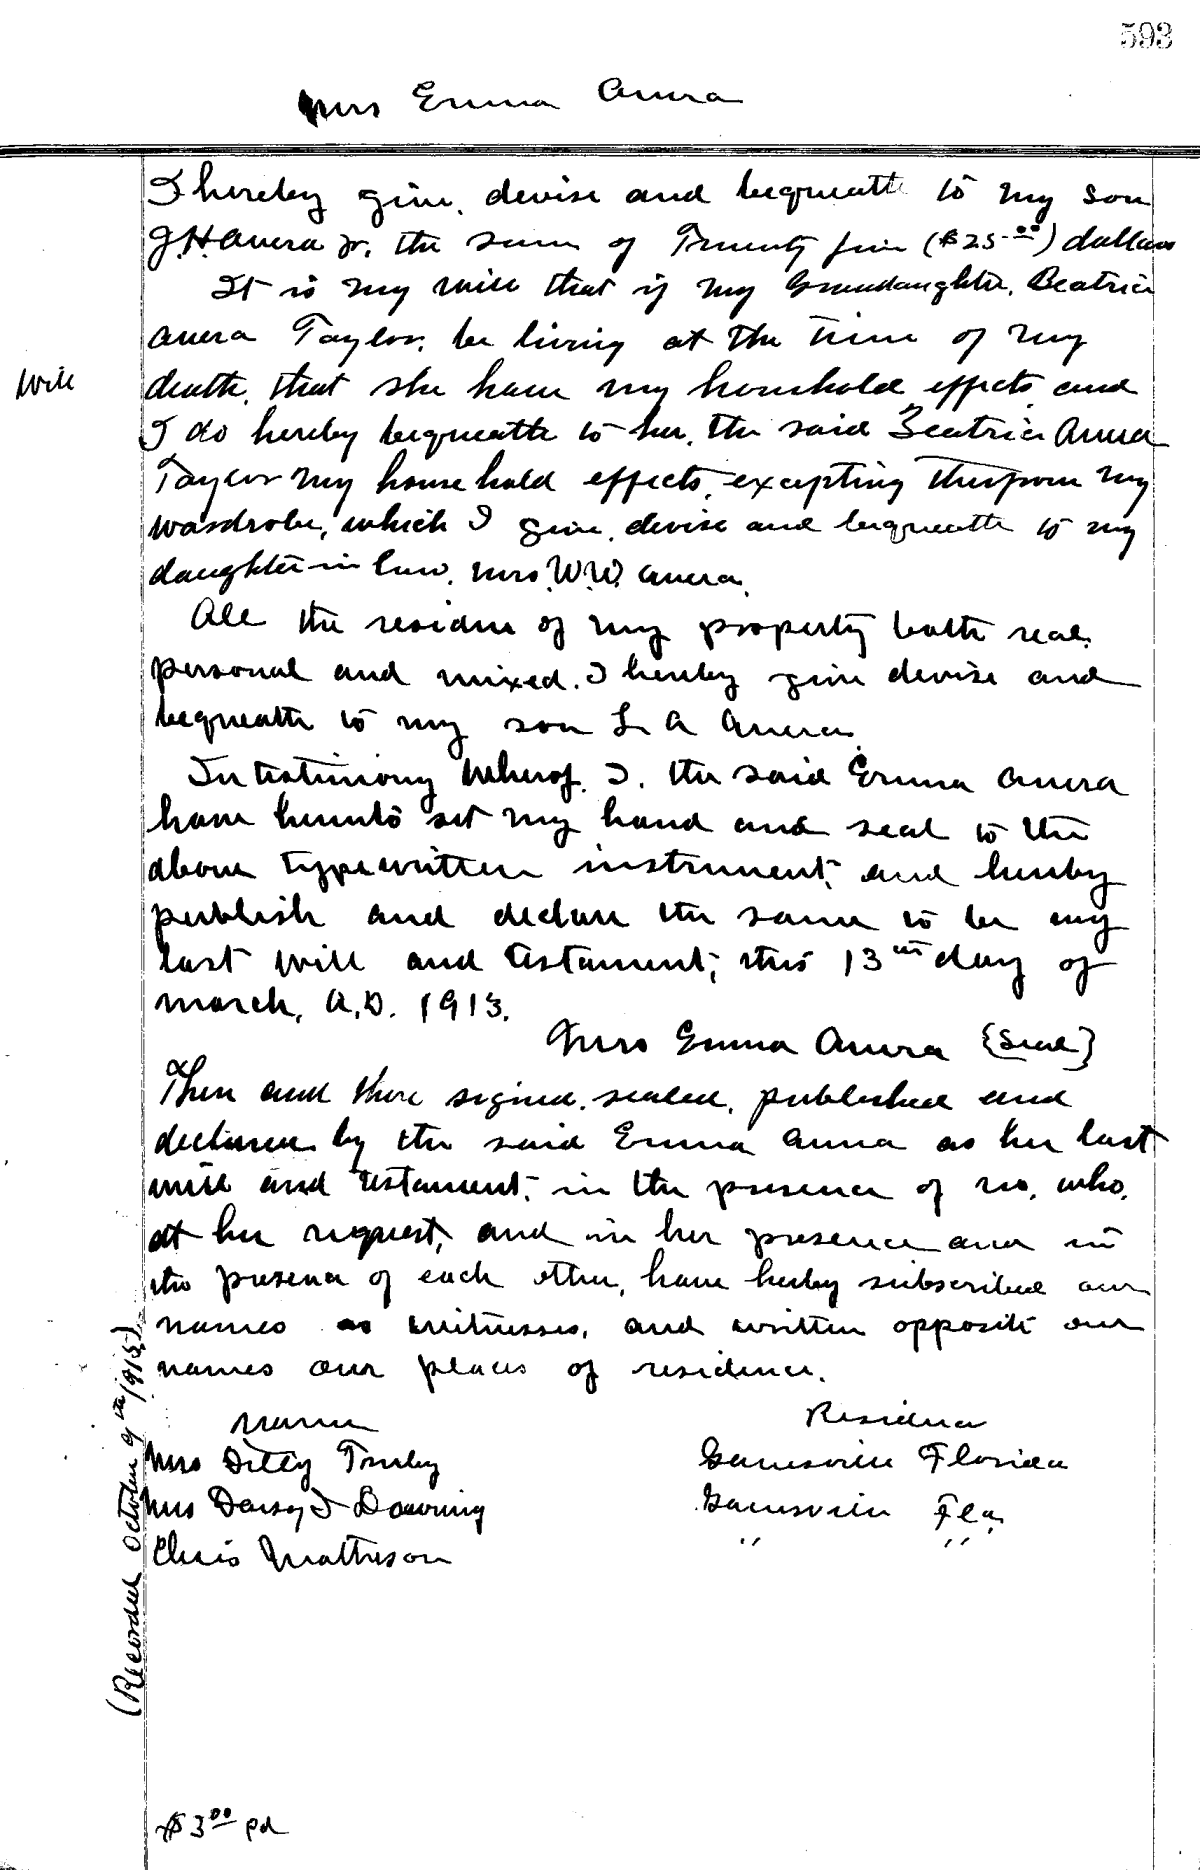 593
Mrs Emma Avera
I hereby give, devise and bequeath to my son
J.H. Avera Jr. the sum of Twenty five ($25.00) dollars
It is my will that if my Granddaughter, Beatrice
Avera Taylor, be living at the time of my
Will
death, that she have my household effects and
I do hereby bequeath to her, the said Beatrice Avera
Taylor my household effects, excepting therefrom my
wardrobe, which I give, devise and bequeath to my
daughter-in law, Mrs. W.W. Avera.
All the residue of my property both real,
personal and mixed. I hereby give devise and
bequeath to my son L A Avera.
In testimony Wherof, I, the said Emma Avera
have hereunto set my hand and seal to the
above typewritten instrument, and hereby
publish and declare the same to be my
last will and testament, this 13th day of
March, A.D. 1913.
Mrs Emma Avera {Seal}
Then and there signed, sealed, published and
declared by the said Emma Avera as her last
will and testament, in the presence of us, who,
at her request, and in her presence and in
the presence of each other, have herby subscribed our
names as witnesses, and written opposite our
names our places of residence.
Name Residence
Mrs Dilly
Gainesville Florida
Mrs Daisy I Downing Gainesville Fla,
Chris Matheson " "
(Recorded October 9th 1915.)
$3.00 pd